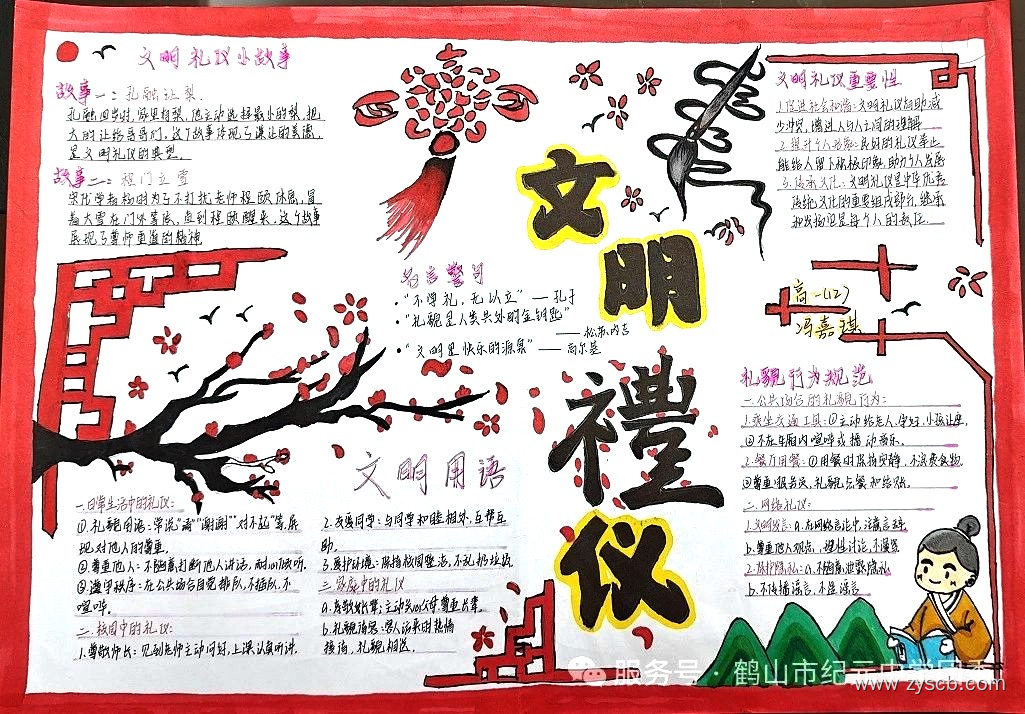 文明礼仪小故事
故事一：孔融让梨.
孔融四岁时,家里有梨,他主动选择最小的梨,把
大的让给哥哥们,这个故事体现了谦让的美德,
是文明礼仪的典型.
故事二：程门立雪
宋代学者杨时为了不打扰老师程颐休息,冒
着大雪在门外等候,直到程颐醒来,这个故事
展现了尊师重道的精神
文明禮仪
名言警句
·“不学礼，无以立” — 孔子
·“礼貌是人类共处的金钥匙”
—— 松苏内吉
·“文明是快乐的源泉” —— 高尔基
文明礼仪重要性
1.促进社会和谐:文明礼仪有助减
少冲突,增进人与人之间的理解
2.提升个人形象:良好的礼仪举止
能给人留下积极印象,助力个人发展
3.传承文化:文明礼仪是中华优秀
传统文化的重要组成部分,继承
和发扬它是每个人的责任.
高一(12)
冯嘉琪
文明用语
一.日常生活中的礼仪:
①.礼貌用语:常说“请”“谢谢”“对不起”等,展
现对他人的尊重.
②.尊重他人:不随意打断他人讲话,耐心倾听.
③.遵守秩序:在公共场合自觉排队,不插队,不
喧哗.
二.校园中的礼仪:
1.尊敬师长:见到老师主动问好,上课认真听讲.
2.友爱同学:与同学和睦相处,互帮互
助.
3.爱护环境:保持校园整洁,不乱扔垃圾
三.家庭中的礼仪
a.孝敬长辈:主动关心父母,尊重长辈.
b.礼貌待客:客人访来时热情
接待,礼貌相送.
礼貌行为规范
一.公共场合的礼貌行为:
1.乘坐交通工具:①主动给老人,孕妇,小孩让座.
②不在车厢内喧哗或播动音乐.
2.餐厅用餐:①用餐时保持安静,不浪费食物.
②尊重服务员,礼貌点餐和结账.
二.网络礼仪:
1.文明发言:a.在网络言论中,注意言辞
b.尊重他人观点,理性讨论,不谩骂
2.保护隐私:a.不随意泄露隐私
b.不传播谣言,不造谣言
服务号·鹤山市纪元中学团委
www.zyscb.com